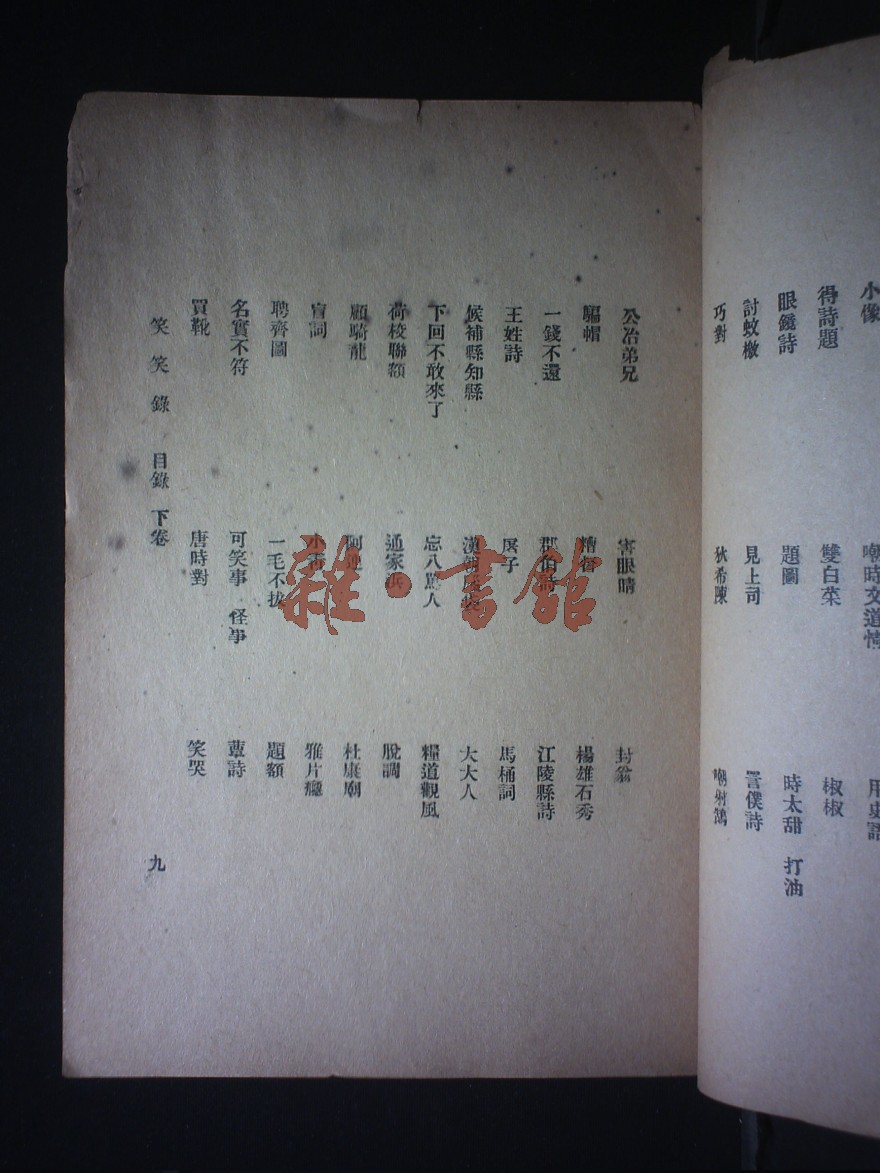 小像
得詩題 雙白菜 椒椒
眼鏡詩 題圖 時太甜 打油
討蚊檄 見上司 詈僕詩
巧對 狄希陳 嘲射鵠
公冶弟兄 害眼睛 封翁
騙帽 楊雄石秀
一錢不還 江陵縣詩
王姓詩 房子 馬桶詞
候補縣知縣 大大人
下回不敢來了 忘八罵人 糧道觀風
荷校聯額 通家 脫調
顧騎龍 杜康廟
盲詞 小青 雅片癮
聘齊圖 一毛不拔 題額
名實不符 可笑事 怪事 蕈詩
買靴 唐時對 笑哭
笑笑錄 目錄 下卷 九
雜·書館